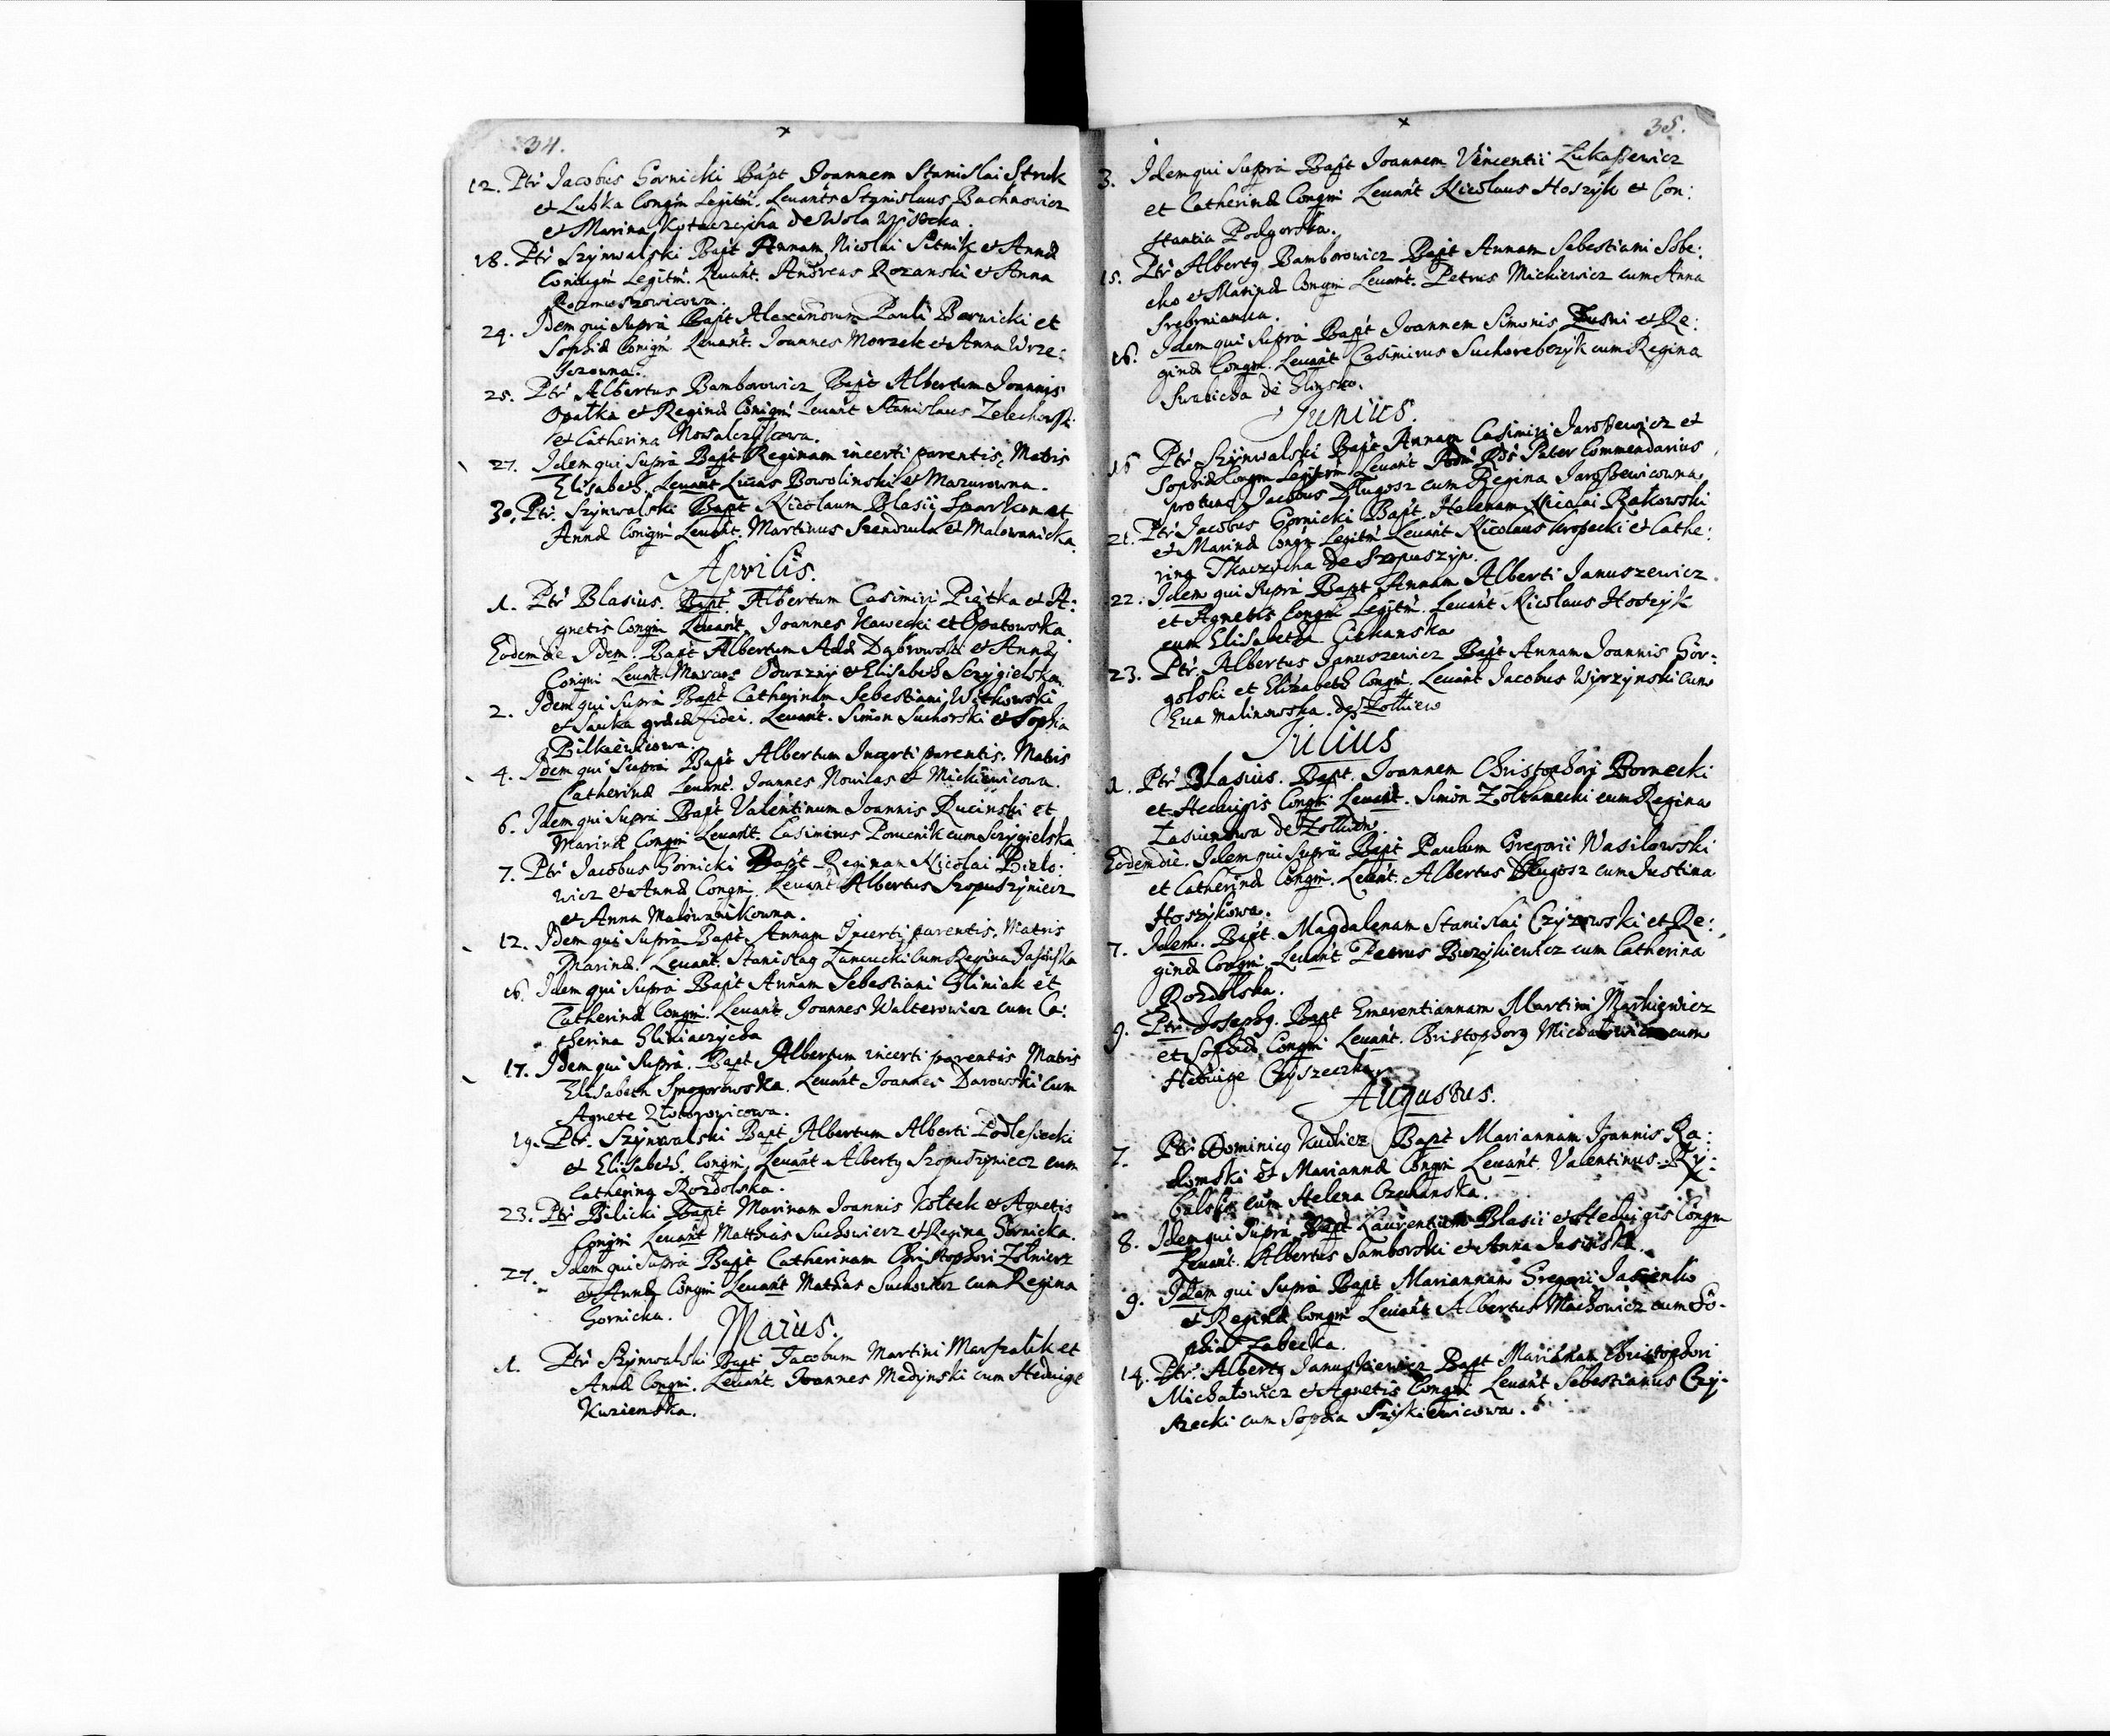 34.
12. Ptr Jacobus Gornicki Bapt Joannem Stanislai Struk
et Lubka Congm Legitm. Levants Stanislaus Bachnowicz
et Marina de Wola Wisocka.
18. Ptr Szynwalski Bapt Annam Nicolai Sitnik et Annæ
Coniugm Legitm. Levant. Andreas Rozanski et Anna

24. Idem qui Supra Bapt Alexandrum Pauli Barwicki et
Sophiæ Conigm. Levant. Joannes Morzek et Anna Wrze:

25. Ptr Albertus Bamborowicz Bapt Albertum Joannis
Opałka et Reginæ Conigm Levant Stanislaus Zelechowski
et Catherina Kowalczykowa.
27. Idem qui Supra Bapt Reginam incerti parentis, Matris
Elisabeth. Levant Lucas Bowolinski et Mazurowna.
30. Ptr. Szynwalski Bapt Nicolaum Blasii et
Annæ Conigm Levant. Martinus Szendzula et Malownicka.
Aprilis.
1. Ptr Blasius. Bapt. Albertum Casimiri Piątka et A:
gnetis Congm Levant. Joannes Nawecki et Opatowska.
Eodem die Idem. Bapt Albertum Adæ Dąbrowski et Annæ
Conigm Levat. Marcus Odwaznij et Elisabeth Sczygielska.
2. Idem qui Supra Bapt Catherinam Sebestiani Witkowski
et græcæ fidei. Levant. Simon Suchorski et Sophia
Bilkiewicowa.
4. Idem qui Supra Bapt Albertum Incerti parentis. Matris
Catherinæ Levant. Joannes Nowilas et Mickiewicowa.
6. Idem qui Supra Bapt Valentinum Joannis Ducinski et
Marinæ Congm Levant. Casimirus cum Sczygielska
7. Ptr Jacobus Gornicki Bapt Reginam Nicolai Bielo:
wicz et Annæ Congm. Levant Albertus Szopuszyniecz
et Anna Malownikowna.
12. Idem qui Supra Bapt Annam Incerti parentis. Matris
Marinæ. Levant. Stanislaq Zancucki cum Regina Jasinska
16. Idem qui Supra Bapt Annam Sebestiani Gliniak et
Catherinæ Congm. Levant Joannes Walterowicz cum Ca:
therina Gliniaczycha
17. Idem qui Supra. Bapt Albertum incerti parentis Matris
Elisabeth Levant Joannes Darowski cum
Agnete Złotorowicowa.
19. Ptr. Szynwalski Bapt Albertum Alberti Podlesiecki
et Elisabeth. Congm Levant Albertq Szopuszyniecz cum
Catherina Rozdolska.
23. Ptr Bilicki Bapt Marinam Joannis Kołtek et Agnetis
Congm Levant Matthias Suchowierz et Regina Gornicka.
27. Idem qui Supra Bapt Catherinam Christophori Zołnierz
et Annæ Congm Levant Mathias Suchowierz cum Regina
Gornicka.
Maius.
1. Ptr Szynwalski Bapt Jacobum Martini Marszalik et
Annæ Congm. Levant. Joannes Medynski cum Hedvige
Kuzienska.
35.
3. Idem qui Supra Bapt Joannem Vincentii Łukaszewicz
et Catherinæ Congm Levant Nicolaus Hoszyk et Con:
stantia Podgorska.
15. Ptr Albertq Bamborowicz Bapt Annam Sebestiani Sobe:
cko et Marinæ Congm Levant. Petrus Mickiewicz cum Anna
Srebrnianka.
16. Idem qui Supra Bapt Joannem Simonis et Re:
ginæ Congm. Levant Casimirus Suchorebczyk cum Regina
de Glinsko.
Junius.
16 Ptr Szynwalski Bapt Annam Casimiri Jaroszewicz et
Sophiæ Congm Legitm Levant Pater Commendarius
Jacobus Długosz cum Regina Jaroszewicowna.
21. Ptr Jacobus Gornicki Bapt. Helenam Nicolai Rakowski
et Marinæ Congm Legitm Levant Nicolaus Kropecki et Cathe:
rina Tkaczycha de Szopuszyn.
22. Idem qui Supra Bapt Annam Alberti Januszewicz
et Agnetis Congm Legitm. Levant Nicolaus Hoszyk
cum Elisabetha Ciekanska
23. Ptr. Albertus Januszewicz Bapt Annam Joannis Gor:
golski et Elizabeth Congm. Levant Jacobus Wyrzynski cum
Eva Malinowska. de Zołkiew
Julius
1. Ptr Blasius. Bapt. Joannem Christophori Bornecki
et Hedvigis Congm Levant. Simon Zołtaniecki cum Regina
de Zolkiew.
Eodem die. Idem qui Supra Bapt Paulum Gregorii Wasilowski
et Catherinæ Congm. Levant. Albertus Długosz cum Justina
Hoszykowa.
7. Idem. Bapt. Magdalenam Stanislai Czyzowski et Re:
ginæ Congm. Levant Petrus cum Catherina
Rozdolska.
9. Ptr. Josephq. Bapt Emerentiannam Martini Markiewicz
et Sophiæ Congm Levant. Christophorq Michałowicz cum
Hedvige
Augustus.
7. Ptr Dominicq Kudlicz Bapt Mariannam Joannis Ra:
domski et Mariannæ Congm Levant. Valentinus Ry:
balski cum Helena
8. Idem qui Supra Bapt Laurentium Blasii et Hedvigis Congm
Levant. Albertus Samborski et Anna Jasinska.
9. Idem qui Supra Bapt Mariannam Gregorii Jasienko
et Reginæ Congm Levant Albertus Machowicz cum So-
phia Zabecka.
14. Ptr. Albertq Januszkiewicz Bapt Mariannam Christophori
Michałowicz et Agnetis Congm Levant Sebestianus Czy-
szecki cum Sophia Szyskiewicowa.